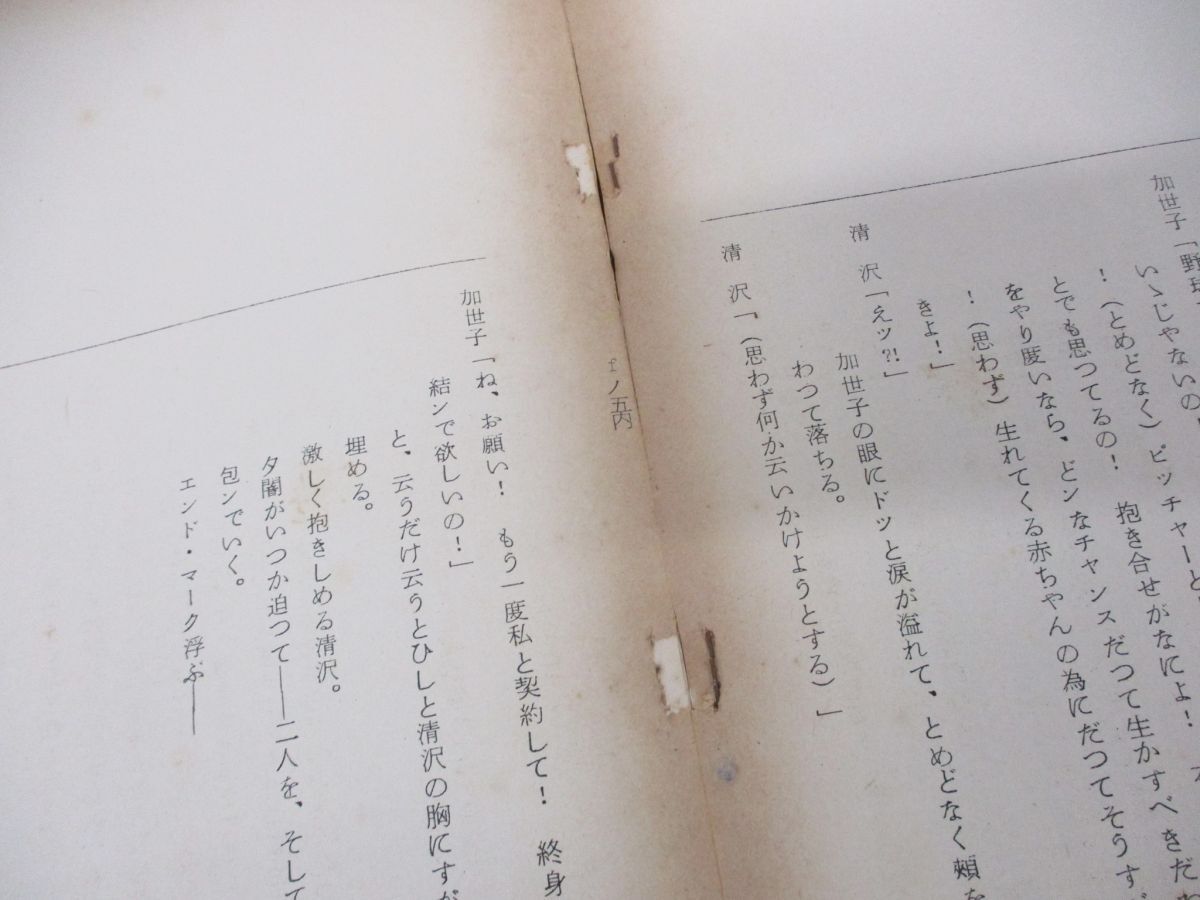 加世子「野球
いゝじゃないの
！（とめどなく）ピッチャーと
とでも思つてるの！　抱き合せがなによ！
をやり度いなら、どンなチャンスだつて生かすべきだ
！（思わず）生れてくる赤ちゃんの為にだつてそうす
きよ！」
清　沢「えッ⁈」
加世子の眼にドッと涙が溢れて、とめどなく頬を
わつて落ちる。
清　沢「、（思わず何か云いかけようとする）」
fノ五内
加世子「ね、お願い！　もう一度私と契約して！　終身
結ンで欲しいの！」
と、云うだけ云うとひしと清沢の胸にすが
埋める。
激しく抱きしめる清沢。
夕闇がいつか迫つて――二人を、そして
包ンでいく。
エンド・マーク浮ぶ――